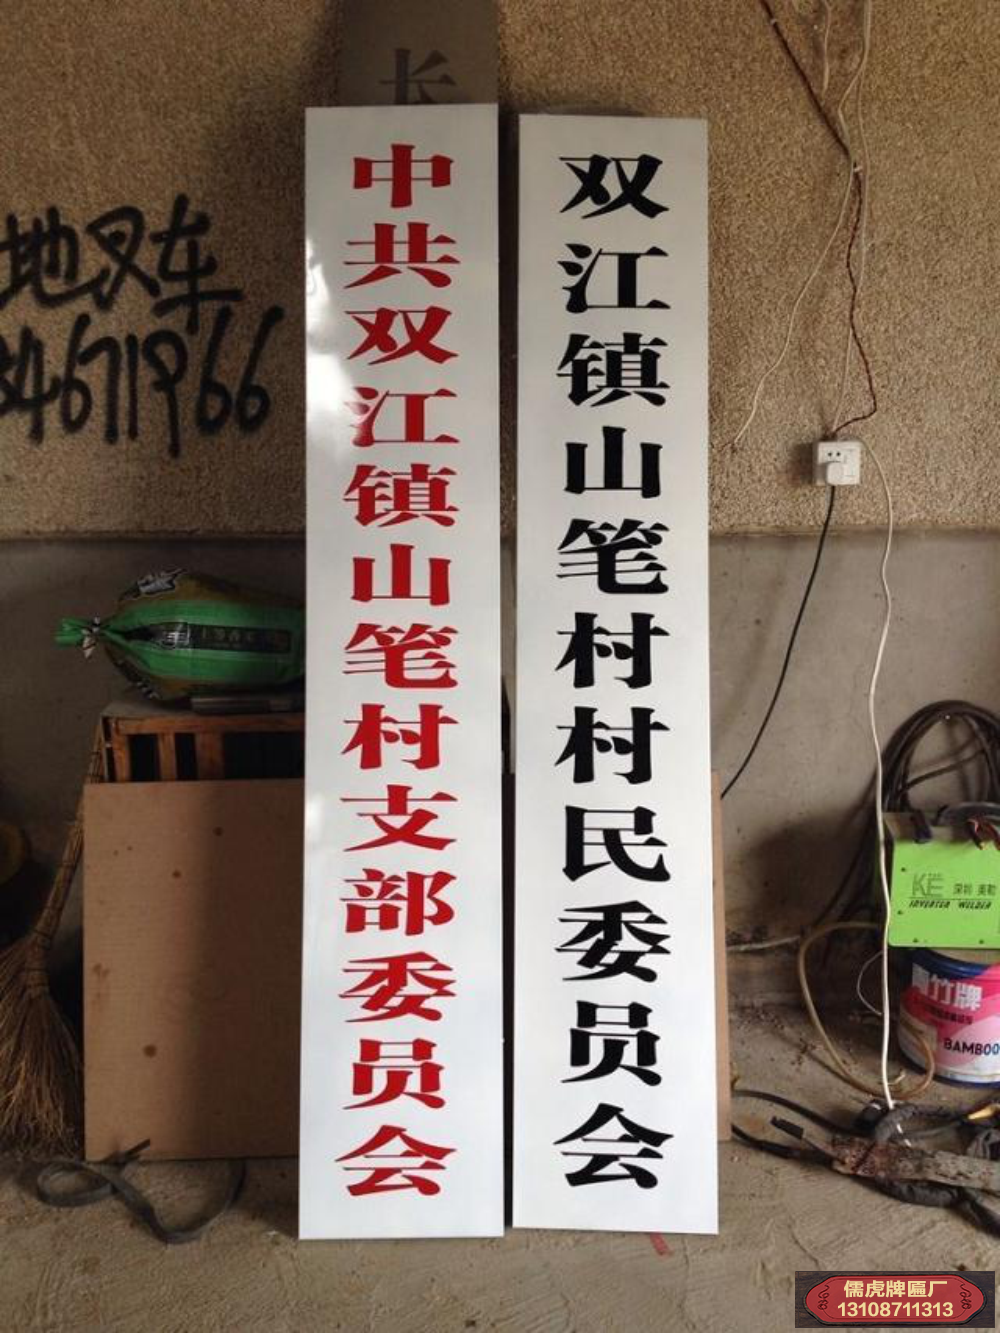 长
中共双江镇山笔村支部委员会
双江镇山笔村村民委员会
地叉车
34671966
KE 深圳 美勒
INVERTER WELDER
竹牌
BAMBOO
儒虎牌匾厂
13108711313